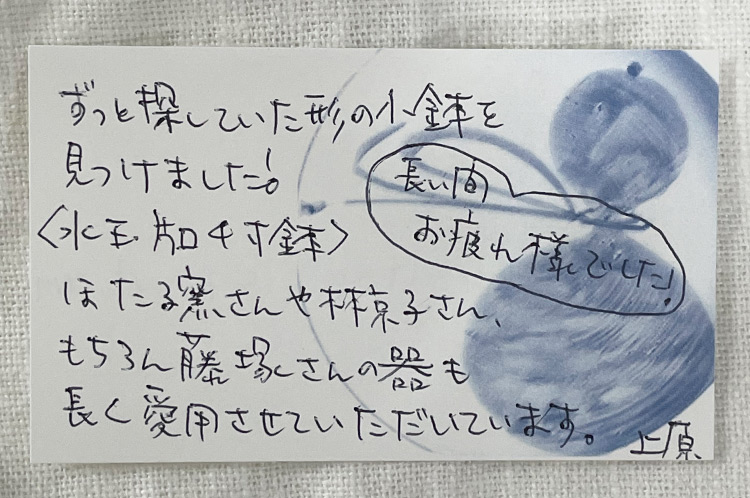 ずっと探していた形の小鉢を
見つけました!
〈水玉片口4寸鉢〉
ほたる窯さんや林京子さん、
もちろん藤塚さんの器も
長く愛用させていただいています。
長い間
お疲れ様でした!
上原